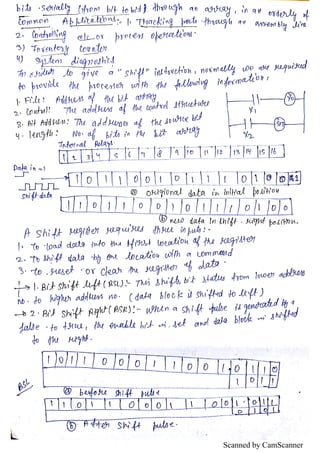 bits serially [from bit to bit] through an array, in an orderly of
Common Applications:- 1. Tracking parts through an assembly line
2. Controlling m/c or process operations.
3) Inventory counter
4) System diagnostics
In order to give a "shift" instruction, normally we are required
to provide the processor with the following information:
1. File: Address of the bit array
2. Control: The address of the control structure
3. Bit Address: The address of the source bit
4. Length: No. of bits in the bit array
Y1
Y2
Internal Relays
1 2 3 4 5 6 7 8 9 10 11 12 13 14 15 16
Data in =1
1 0 1 1 0 0 1 0 1 1 1 0 1
Shift data
ⓐ original data in initial position
1 1 0 1 1 0 0 1 0 1 1 1 0 1 0 0
ⓑ new data in shift right position.
A Shift register requires three inputs:-
1. To load data into the first location of the register
2. To shift data by one location with a command
3. To reset or clear the register of data.
→ 1. Bit Shift left (BSL):- This shifts bit status from lower address
no. to higher address no. (data block is shifted to left)
→ 2. Bit Shift Right (BSR):- When a shift pulse is generated by a
false to true, the enable bit is set and data block is shifted
to the right.
1 0 1 1 0 0 0 1 1 0 0 1 0 1 1 0
1 0 1 1
BSL
ⓐ before shift pulse
1 1 0 1 1 0 0 0 1 1 0 0
ⓑ After shift pulse.
Scanned by CamScanner